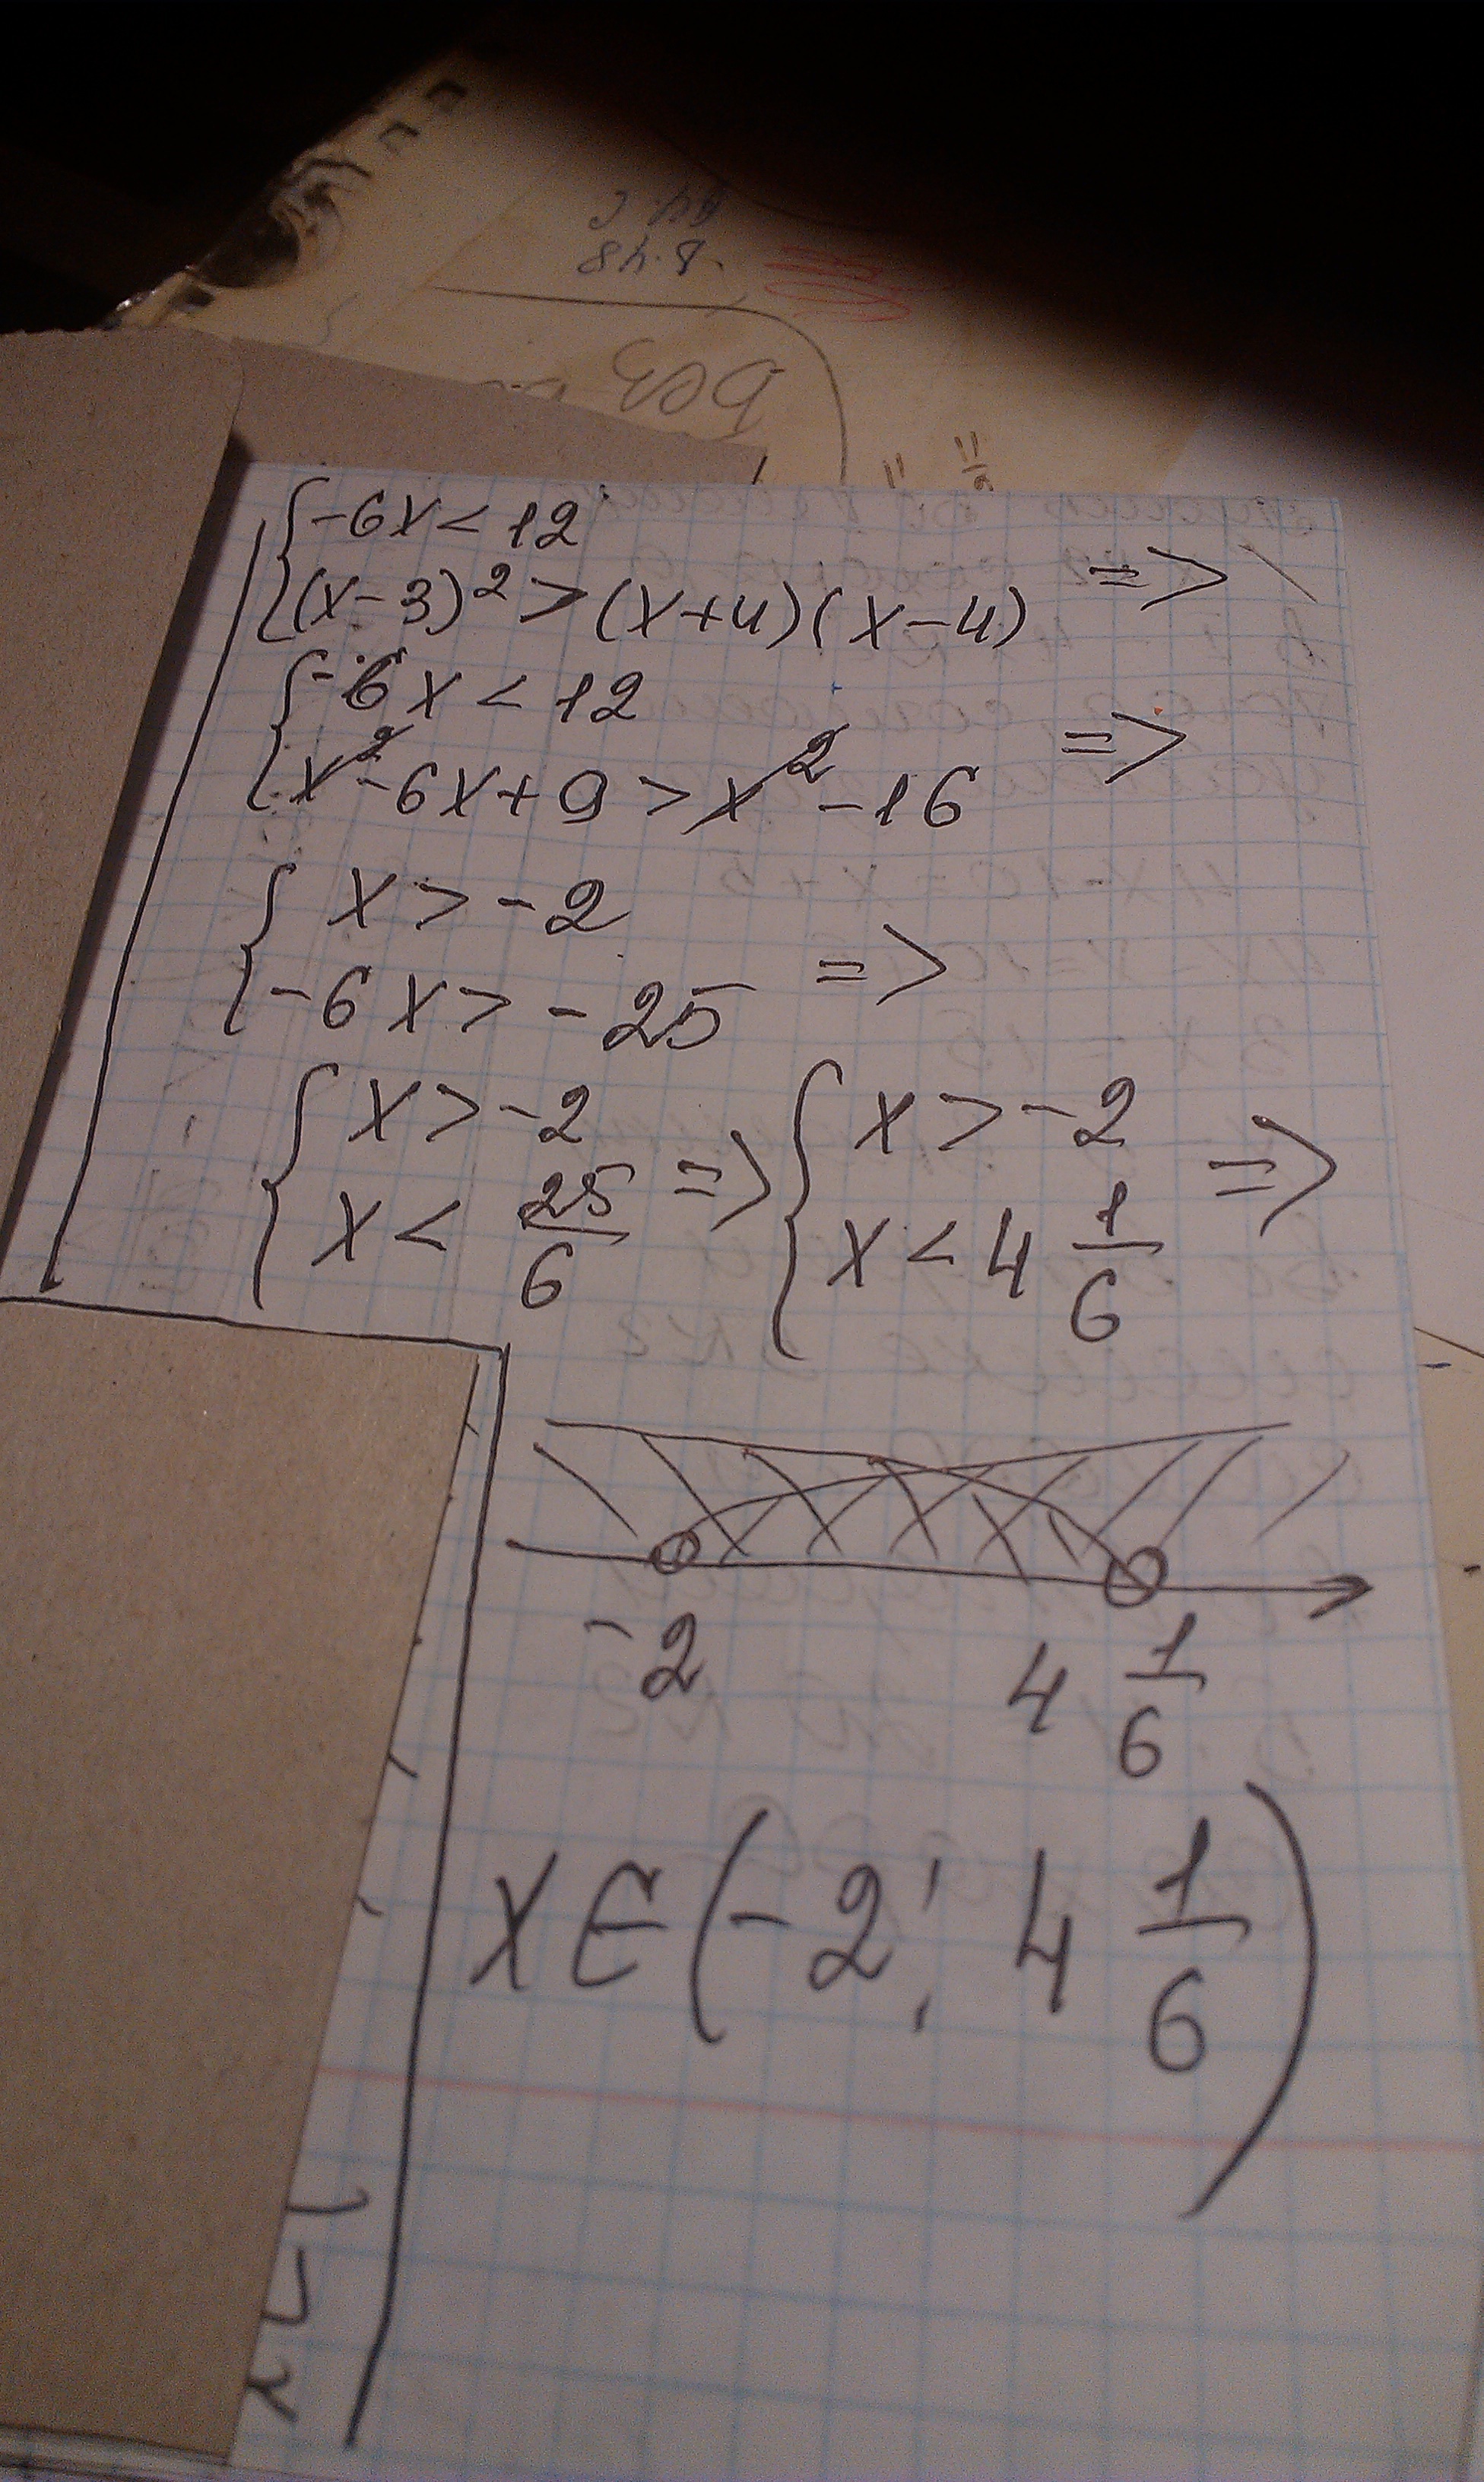 без
{-6x < 12
{(x-3)² > (x+4)(x-4) =>
{-6x < 12
{x²-6x+9 > x²-16 =>
{x > -2
{-6x > -25 =>
{x > -2 => {x > -2 =>
{x < 25/6 {x < 4 1/6
-2 4 1/6
x∈(-2; 4 1/6)